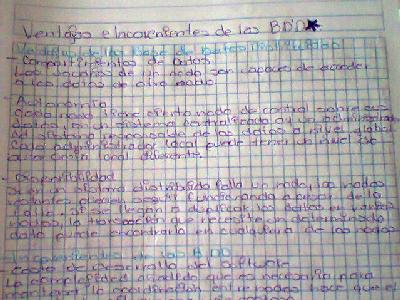 Ventajas e Inconvenientes de las BDD
Ventajas de las Base de Datos Distribuidas
- Compartimientos de datos.
Los usuarios de un nodo son capaces de acceder
a los datos de otro nodo.
- Autonomía
Cada nodo tiene cierto nodo de control sobre sus
datos, en un sistema centralizado, hay un administrador
del sistema responsable de los datos a nivel global
Cada administrador local puede tener un nivel de
autonomía local diferente.
- Disponibilidad
Si en un sistema distribuido falla un nodo, los nodos
restantes pueden seguir funcionando a pesar de la
falla. si se llegan a duplicar los datos en varios
nodos, la transacción que necesite un determinado
dato puede encontrarlo en cualquiera de los nodos
Inconvenientes de las BDD
- Costo de desarrollo del software
La complejidad añadida que es necesaria para
la coordinación entre nodos hace que el